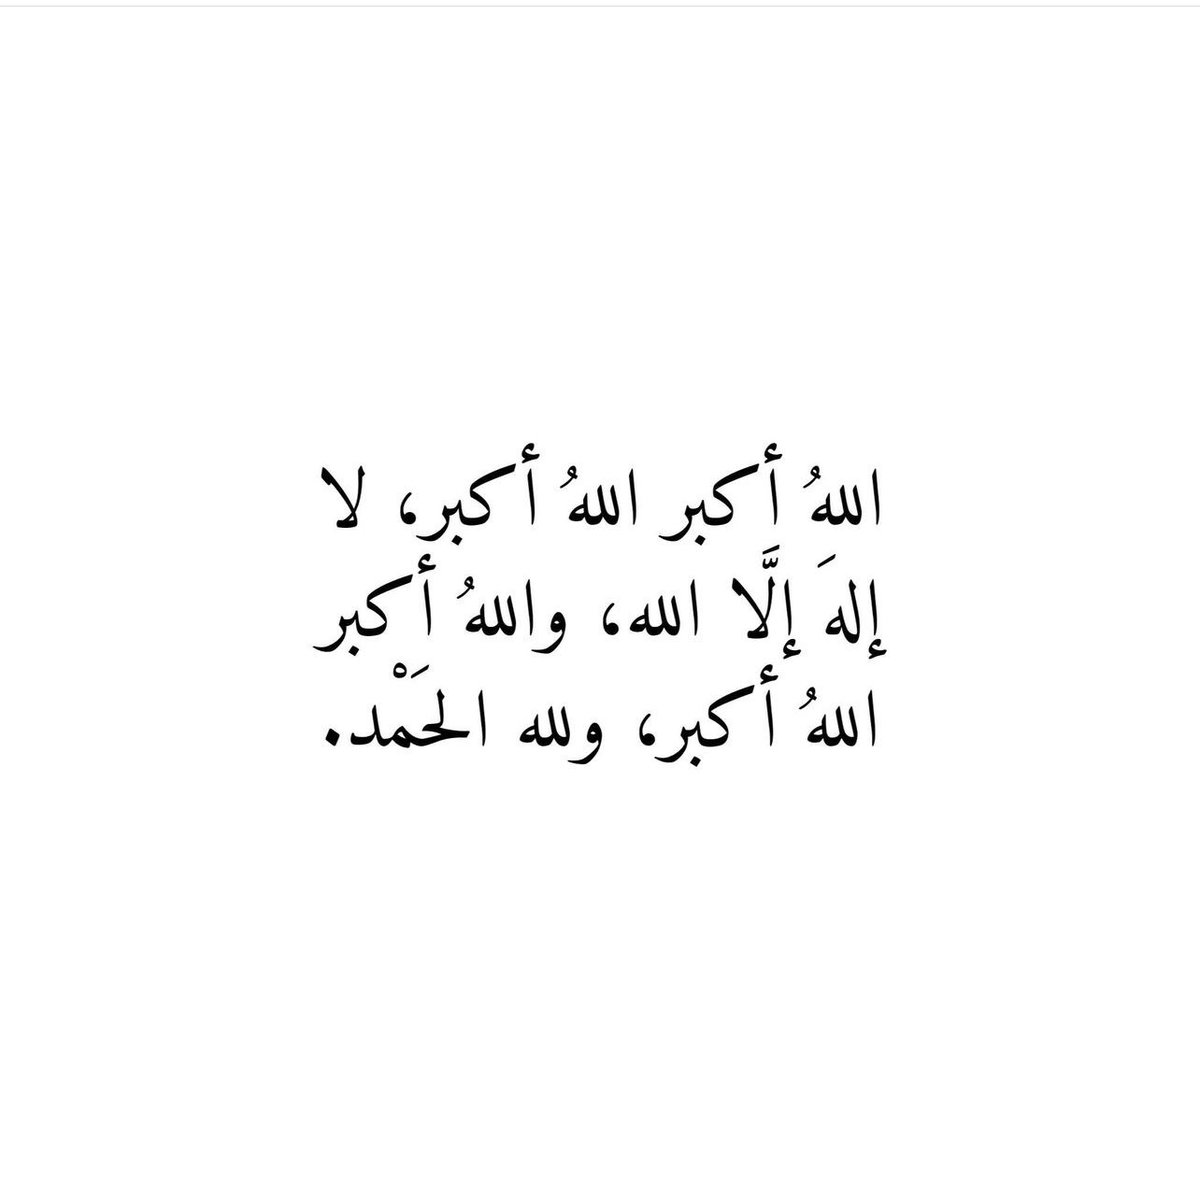 اللهُ أكبر اللهُ أكبر، لا
إلهَ إلَّا الله، واللهُ أكبر
اللهُ أكبر، ولله الحَمْد.